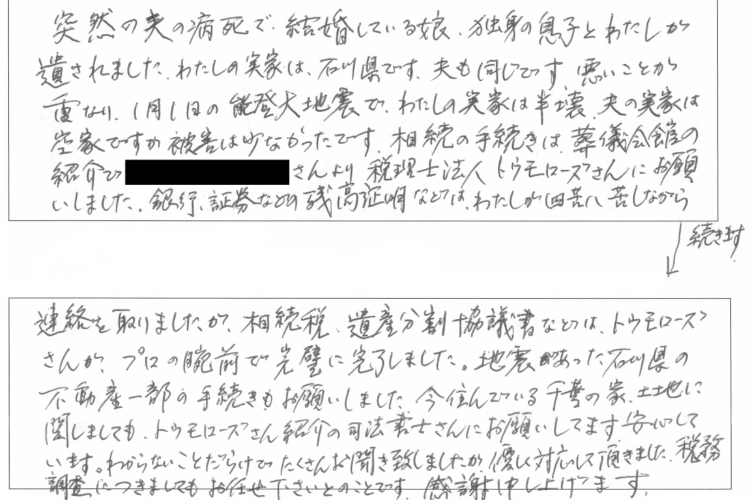 突然の夫の病死で、結婚している娘、独身の息子とわたしが
遺されました。わたしの実家は、石川県です。夫も同じです。悪いことが
重なり、1月1日の能登大地震で、わたしの実家は半壊、夫の実家は
空家ですが被害は少なかったです。相続の手続きは、葬儀会館の
紹介で さんより 税理士法人 トゥモローズさんにお願
いしました。銀行、証券などの残高証明などは、わたしが四苦八苦しながら
続きます
連絡を取りましたが、相続税、遺産分割協議書などは、トゥモローズ
さんが、プロの腕前で完璧に完了しました。地震があった石川県の
不動産一部の手続きもお願いしました。今住んでいる千葉の家、土地に
関しましても、トゥモローズさん紹介の司法書士さんにお願いしてます。安心して
います。わからないことだらけで、たくさんお聞き致しましたが、優しく対応して頂きました。税務
調査につきましてもお任せ下さいとのことです。感謝申し上げます。